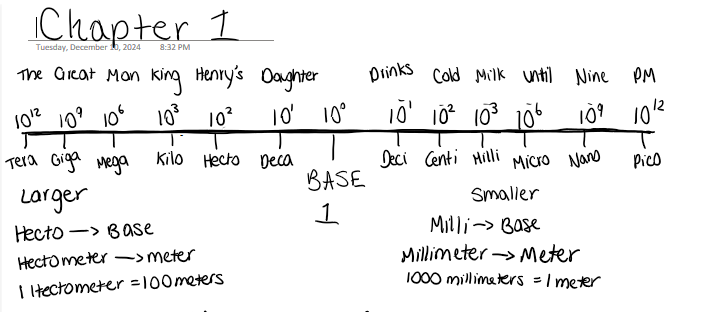 Chapter 1
Tuesday, December 10, 2024 8:32 PM
The Great Man King Henry's Daughter Drinks Cold Milk until Nine PM
10¹² 10⁹ 10⁶ 10³ 10² 10¹ 10⁰ 10⁻¹ 10⁻² 10⁻³ 10⁻⁶ 10⁻⁹ 10¹²
Tera Giga Mega Kilo Hecto Deca Deci Centi Milli Micro Nano Pico
BASE
1
Larger
Hecto → Base
Hectometer → meter
1 Hectometer = 100 meters
Smaller
Milli → Base
Millimeter → Meter
1000 millimeters = 1 meter